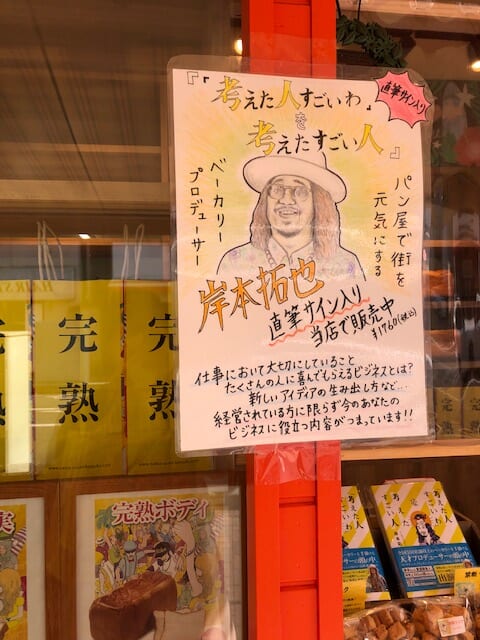 『「考えた人すごいわ」
を
考えたすごい人』
直筆サイン入り
パン屋で街を
元気にする
ベーカリー
プロデューサー
岸本拓也
直筆サイン入り
当店で販売中
¥1760(税込)
仕事において大切にしていること
たくさんの人に喜んでもらえるビジネスとは?
新しいアイディアの生み出し方など...
経営されている方に限らず今のあなたの
ビジネスに役立つ内容がつまっています!!
完熟
完熟
完熟
完熟ボディ
実
考えた人
すごいわ
を
考えた
すごい人